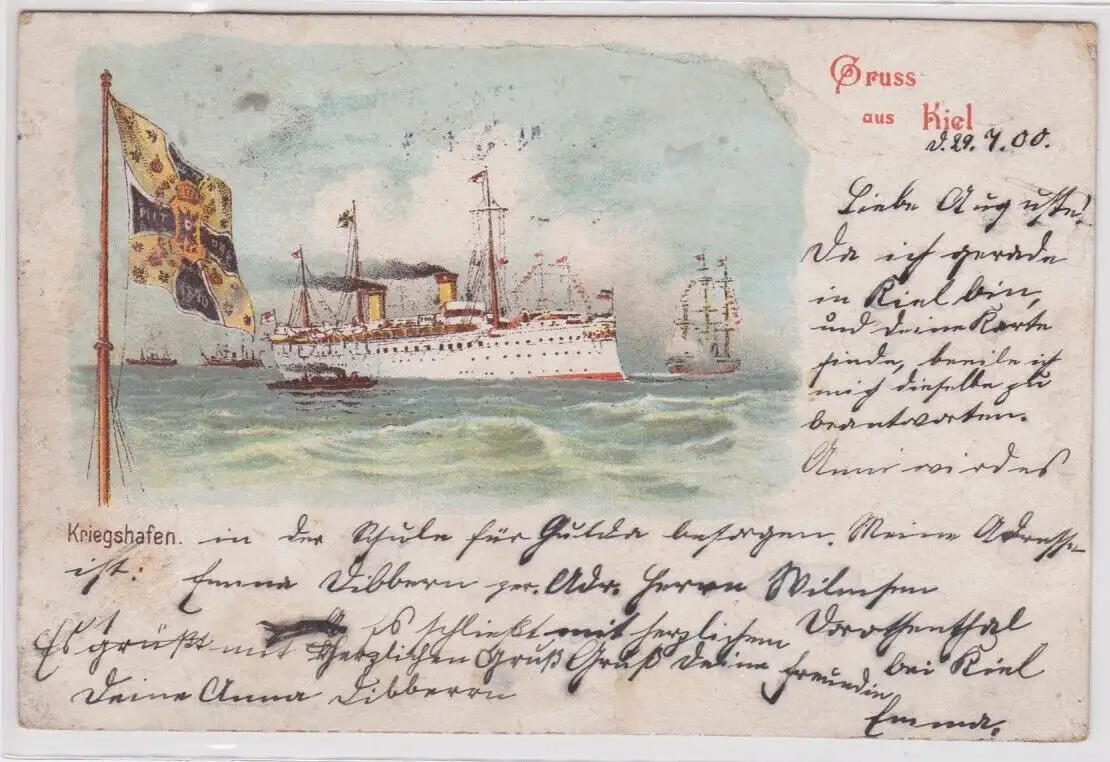 Gruss
aus Kiel
d. 29. 7. 00.
Liebe Auguste!
Da ich gerade
in Kiel bin,
und deine Karte
finde, beeile ich
mich dieselbe zu
beantworten.
Anni wird es
Kriegshafen.
in der Schule für Gulda besorgen. Meine Adresse
ist: Emma Dibbern per. Adr. Herrn Wilmsen
Dorothenthal
bei Kiel
Es schließt mit herzlichem
Gruß Deine Freundin
Emma.
Es grüßt mit herzlichen Gruß
Deine Anna Dibbern